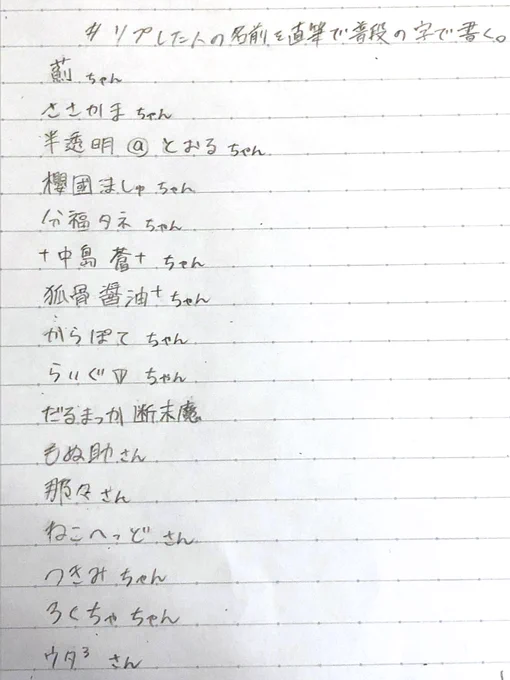 #リプした人の名前を直筆で普段の字で書く。
薊ちゃん
ささかまちゃん
半透明@とおるちゃん
櫻國ましゅちゃん
分福タネちゃん
+中島蒼+ちゃん
狐骨醤油+ちゃん
がらぽてちゃん
らいぐちゃん
だるまっか断末魔
もぬ助さん
那々さん
ねこへっどさん
つきみちゃん
ろくちゃちゃん
ウタ³さん